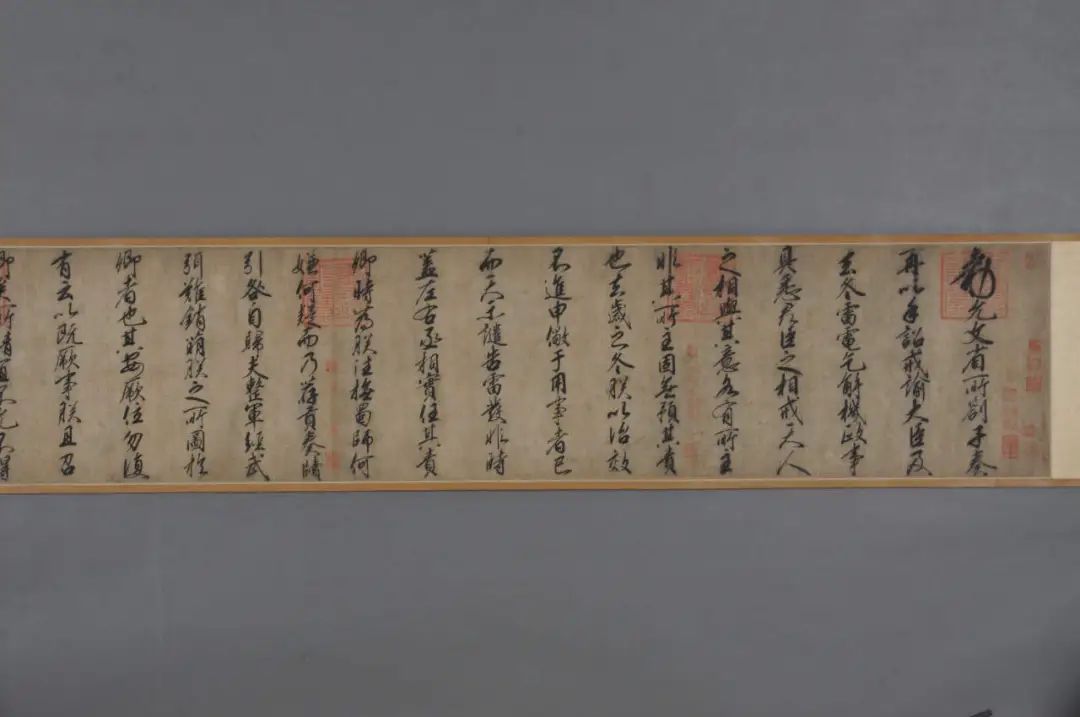 勅允文省所劄子奏
再以手詔戒諭大臣及
去冬雷電乞解機政事
具悉君臣之相戒天人
之相與其意各有所主
非其所主固無預其責
也去歲之冬朕以治效
不進申儆于用事者已
而天示譴告雷發非時
蓋左右丞相實任其責
卿時為朕往撫蜀師何
嫌何疑而乃荐貢奏牘
引咎自歸夫整軍經武
弭難銷萌朕之所圖於
卿者也其安厥位勿復
有云以既厥事朕且召
卿矣所請宜不允